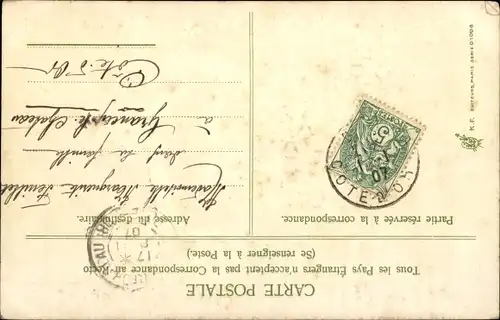 CARTE POSTALE
Tous les Pays Étrangers n'acceptent pas la Correspondance au Recto
(Se renseigner à la Poste.)
Partie réservée à la correspondance.
Adresse du destinataire.
Mademoiselle Marguerite Feuillet
dans sa famille
à Grancey le Château
Côte d'Or
5
07
COTE D'OR
17
07
K.F. EDITEURS, PARIS SERIE